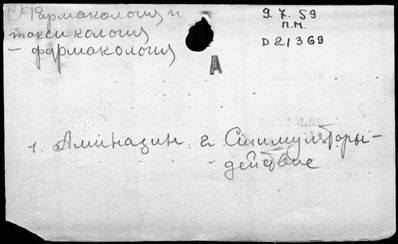 Фармакология и
токсикология
- фармакология
9.7.59
П.М.
D21369
А
1. Аминазин. 2. Стимуляторы -
- действие